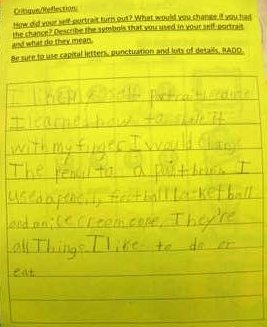 Critique/Reflection:
How did your self-portrait turn out? What would you change if you had
the chance? Describe the symbols that you used in your self-portrait
and what do they mean.
Be sure to use capital letters, punctuation and lots of details. RADD
portrait
I learned how to
with my finger. I would change
The pencil to a paintbrush. I
used a pencil, football basketball
and an ice cream cone. They're
all Things I like to do or
eat